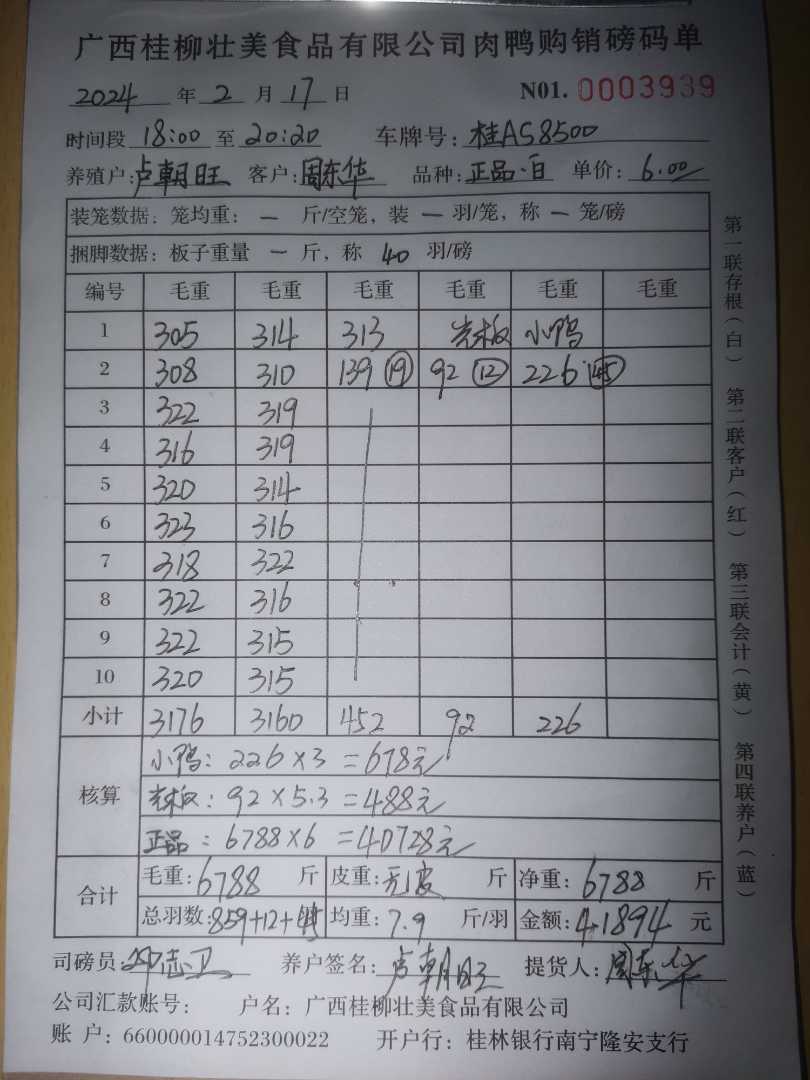 广西桂柳壮美食品有限公司肉鸭购销磅码单
2024 年 2 月 17 日 N01. 0003939
时间段 18:00 至 20:20 车牌号: 桂AS8500
养殖户: 卢朝旺 客户: 周东华 品种: 正品.白 单价: 6.00
装笼数据: 笼均重: 一 斤/空笼, 装 一 羽/笼, 称 一 笼/磅
捆脚数据: 板子重量 一 斤, 称 40 羽/磅
编号 毛重 毛重 毛重 毛重 毛重 毛重
1 305 314 313 光板 小鸭
2 308 310 139 ⑲ 92 ⑫ 226 ㊺
3 322 319
4 316 319
5 320 314
6 323 316
7 318 322
8 322 316
9 322 315
10 320 315
小计 3176 3160 452 92 226
核算
小鸭: 226×3=678元
光板: 92×5.3=488元
正品: 6788×6=40728元
合计
毛重: 6788 斤 皮重: 无皮 斤 净重: 6788 斤
总羽数: 859+12+45 均重: 7.9 斤/羽 金额: 41894 元
司磅员: 志卫 养户签名: 卢朝旺 提货人: 周东华
公司汇款账号: 户名: 广西桂柳壮美食品有限公司
账 户: 660000014752300022 开户行: 桂林银行南宁隆安支行
第一联存根(白) 第二联客户(红) 第三联会计(黄) 第四联养户(蓝)